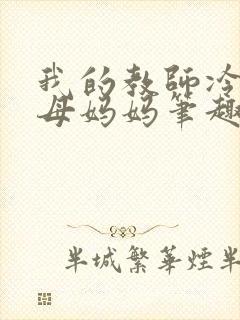 我的教師冷
母妈妈笔趣
半城繁華煙半